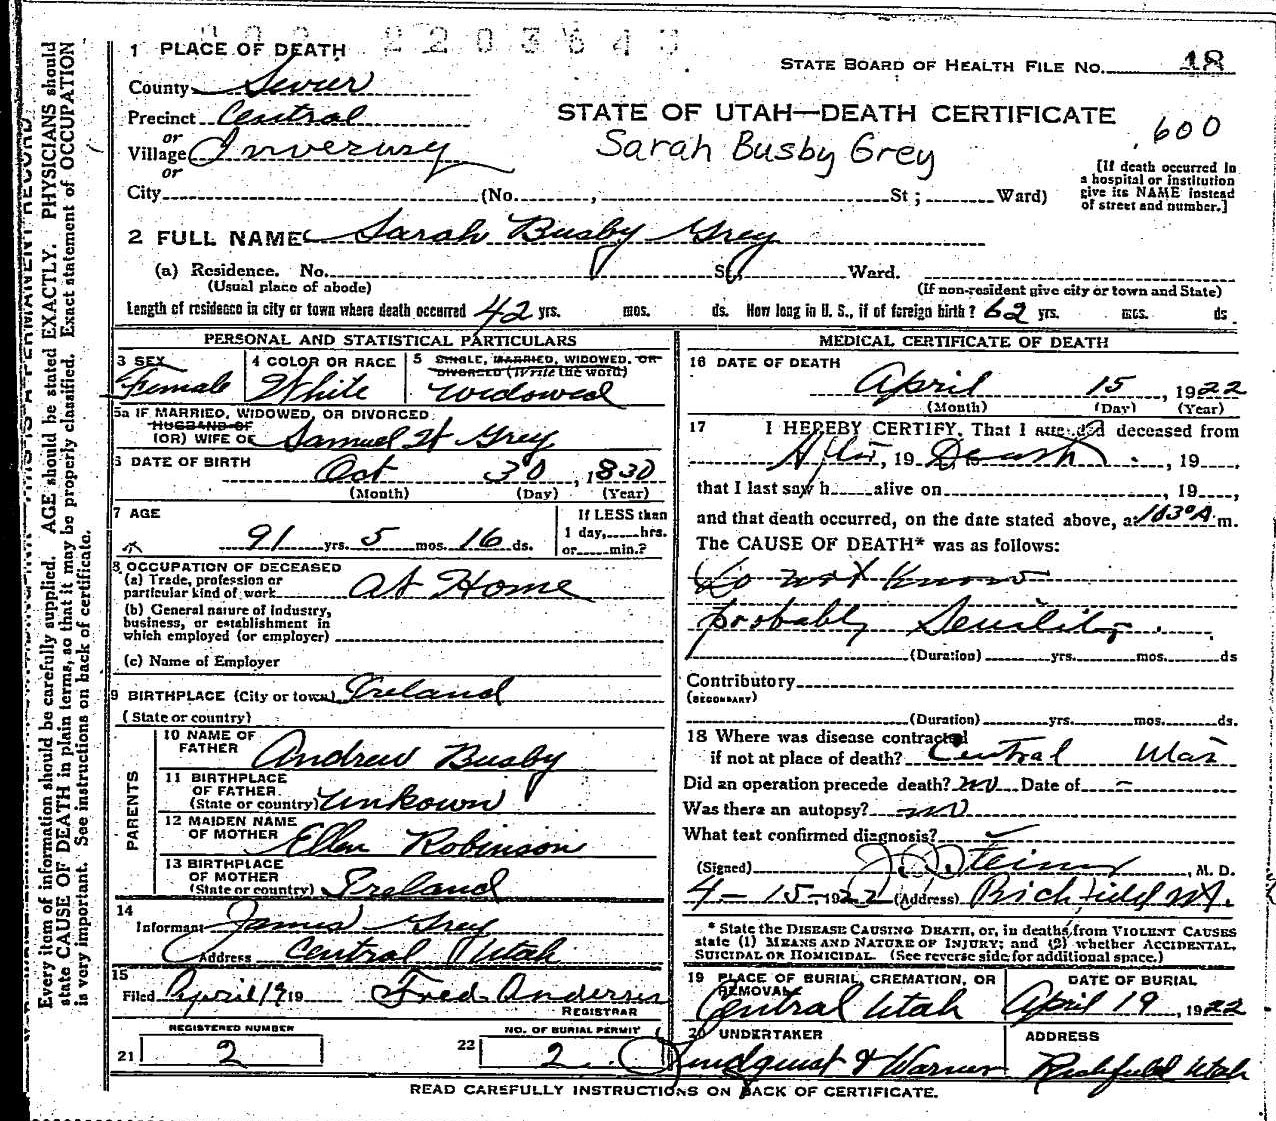 1 PLACE OF DEATH
STATE BOARD OF HEALTH FILE No. 18
County Sevier
Precinct Central
STATE OF UTAH—DEATH CERTIFICATE
600
or
Village Inverury
Sarah Busby Grey
or
City (No. , St ; Ward)
[If death occurred in
a hospital or institution
give its NAME instead
of street and number.]
2 FULL NAME Sarah Busby Grey
(a) Residence. No. St, Ward.
(Usual place of abode)
(If non-resident give city or town and State)
Length of residence in city or town where death occurred 42 yrs. mos. ds. How long in U. S., if of foreign birth? 62 yrs. mcs. ds
PERSONAL AND STATISTICAL PARTICULARS
3 SEX
Female
4 COLOR OR RACE
White
5 SINGLE, MARRIED, WIDOWED, OR
DIVORCED (Write the word)
Widowed
5a IF MARRIED, WIDOWED, OR DIVORCED
HUSBAND OF
(OR) WIFE OF Samuel W Grey
6 DATE OF BIRTH
Oct 30, 1830
(Month) (Day) (Year)
7 AGE
91 yrs. 5 mos. 16 ds.
If LESS than
1 day, hrs.
or min.?
8 OCCUPATION OF DECEASED
(a) Trade, profession or
particular kind of work at Home
(b) General nature of industry,
business, or establishment in
which employed (or employer)
(c) Name of Employer
9 BIRTHPLACE (City or town) Ireland
(State or country)
PARENTS
10 NAME OF
FATHER Andrew Busby
11 BIRTHPLACE
OF FATHER
(State or country) Unkown
12 MAIDEN NAME
OF MOTHER Ellen Robinson
13 BIRTHPLACE
OF MOTHER
(State or country) Ireland
14
Informant James Grey
Address Central Utah
15
Filed April 19 19 Fred Anderson
REGISTRAR
REGISTERED NUMBER
21 2
NO. OF BURIAL PERMIT
22 2
MEDICAL CERTIFICATE OF DEATH
16 DATE OF DEATH
April 15, 1922
(Month) (Day) (Year)
17 I HEREBY CERTIFY, That I attended deceased from
After, 19 Death, 19
that I last saw h alive on , 19 ,
and that death occurred, on the date stated above, at 1030A m.
The CAUSE OF DEATH* was as follows:
Do not know
probably Senility.
(Duration) yrs. mos. ds
Contributory
(SECONDARY)
(Duration) yrs. mos. ds.
18 Where was disease contracted
if not at place of death? Central Utah
Did an operation precede death? no Date of –
Was there an autopsy? no
What test confirmed diagnosis?
(Signed) Steiner, M. D.
4-15-1922 (Address) Richfield Ut.
* State the DISEASE CAUSING DEATH, or, in deaths from VIOLENT CAUSES
state (1) MEANS AND NATURE OF INJURY; and (2) whether ACCIDENTAL,
SUICIDAL OR HOMICIDAL. (See reverse side for additional space.)
19 PLACE OF BURIAL, CREMATION, OR
REMOVAL
Central Utah
DATE OF BURIAL
April 19, 1922
20 UNDERTAKER
Lundquist & Warner
ADDRESS
Richfield Utah
READ CAREFULLY INSTRUCTIONS ON BACK OF CERTIFICATE.
Every item of information should be carefully supplied. AGE should be stated EXACTLY. PHYSICIANS should
state CAUSE OF DEATH in plain terms, so that it may be properly classified. Exact statement of OCCUPATION
is very important. See instructions on back of certificate.